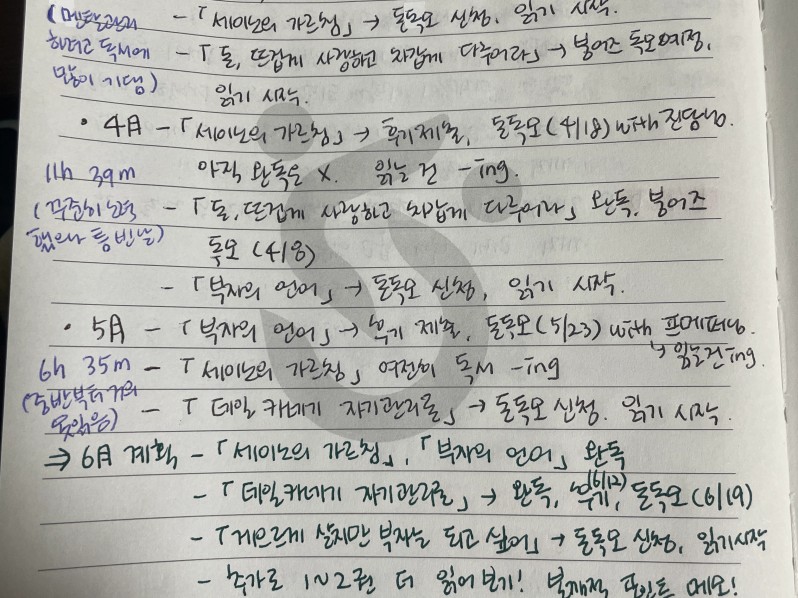 (멘탈관리 -「세이노의 가르침」→ 돌독모 신청, 읽기 시작.
하려고 독서에 -「돈, 뜨겁게 사랑하고 차갑게 다루어라」→ 붕어즈 독모예정,
많이 기댐) 읽기 시작.
• 4月 -「세이노의 가르침」→ 후기제출, 돌독모(4/18) with 진담님.
11h 39m 아직 완독은 X. 읽는 건 -ing.
(꾸준히 노력 -「돈, 뜨겁게 사랑하고 차갑게 다루어라」 완독, 붕어즈
했으나 통 반납) 독모 (4/8)
-「부자의 언어」→ 돌독모 신청, 읽기 시작.
• 5月 -「부자의 언어」→ 후기 제출, 돌독모(5/23) with 프메퍼님.
↳ 읽는건ing.
6h 35m -「세이노의 가르침」 여전히 독서 -ing
(중반부터 거의 -「데일 카네기 자기관리론」→ 돌독모 신청. 읽기 시작.
못읽음)
⇒ 6月 계획 -「세이노의 가르침」,「부자의 언어」 완독
-「데일카네기 자기관리론」→ 완독, 후기(6/12), 돌독모(6/19)
-「게으르게 살지만 부자는 되고 싶어」→ 돌독모 신청, 읽기시작
- 추가로 1~2권 더 읽어보기! 포인트 메모!